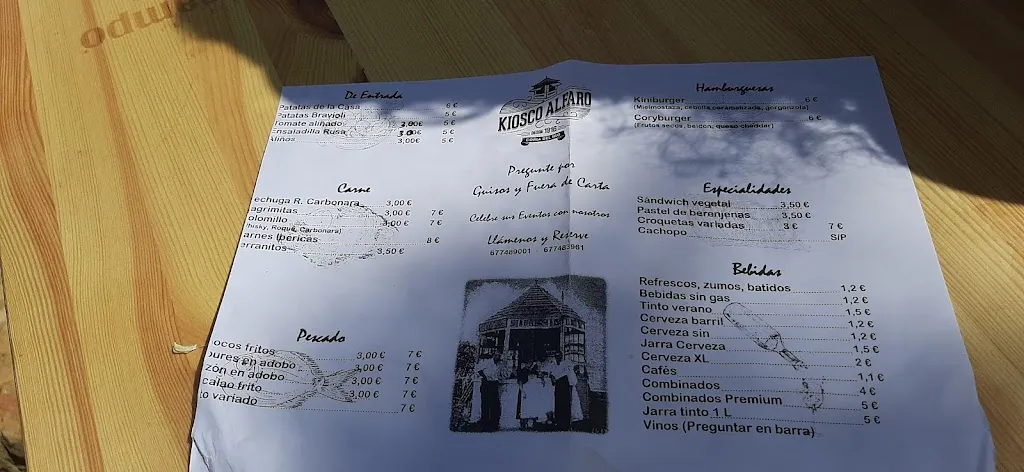 De Entrada
Patatas de la Casa 6 €
Patatas Bravioli 5 €
Tomate aliñado 3,00€ 5 €
Ensaladilla Rusa 3,00€ 5 €
Aliños 3,00€ 5 €
Carne
echuga R. Carbonara 3,00 €
agrimitas 3,00 € 7 €
olomillo 3,00 € 7 €
hisky, Roque, Carbonara)
arnes Ibéricas 8 €
erranitos 3,50 €
Pescado
ocos fritos 3,00 € 7 €
ures en adobo 3,00 € 7 €
zón en adobo 3,00 € 7 €
calao frito 3,00 € 7 €
to variado 7 €
KIOSCO ALFARO
DESDE 1916
Pregunte por
Guisos y Fuera de Carta
Celebre sus Eventos con nosotros
Llámenos y Reserve
677489001 - 677483961
Hamburguesas
Kiniburger 6 €
(Mielmostaza, cebolla caramelizada, gorgonzola)
Coryburger 6 €
(Frutos secos, beicon, queso cheddar)
Especialidades
Sándwich vegetal 3,50 €
Pastel de berenjenas 3,50 €
Croquetas variadas 3 € 7 €
Cachopo S/P
Bebidas
Refrescos, zumos, batidos 1,2 €
Bebidas sin gas 1,2 €
Tinto verano 1,5 €
Cerveza barril 1,2 €
Cerveza sin 1,2 €
Jarra Cerveza 1,5 €
Cerveza XL 2 €
Cafés 1,1 €
Combinados 4 €
Combinados Premium 5 €
Jarra tinto 1 L 5 €
Vinos (Preguntar en barra)